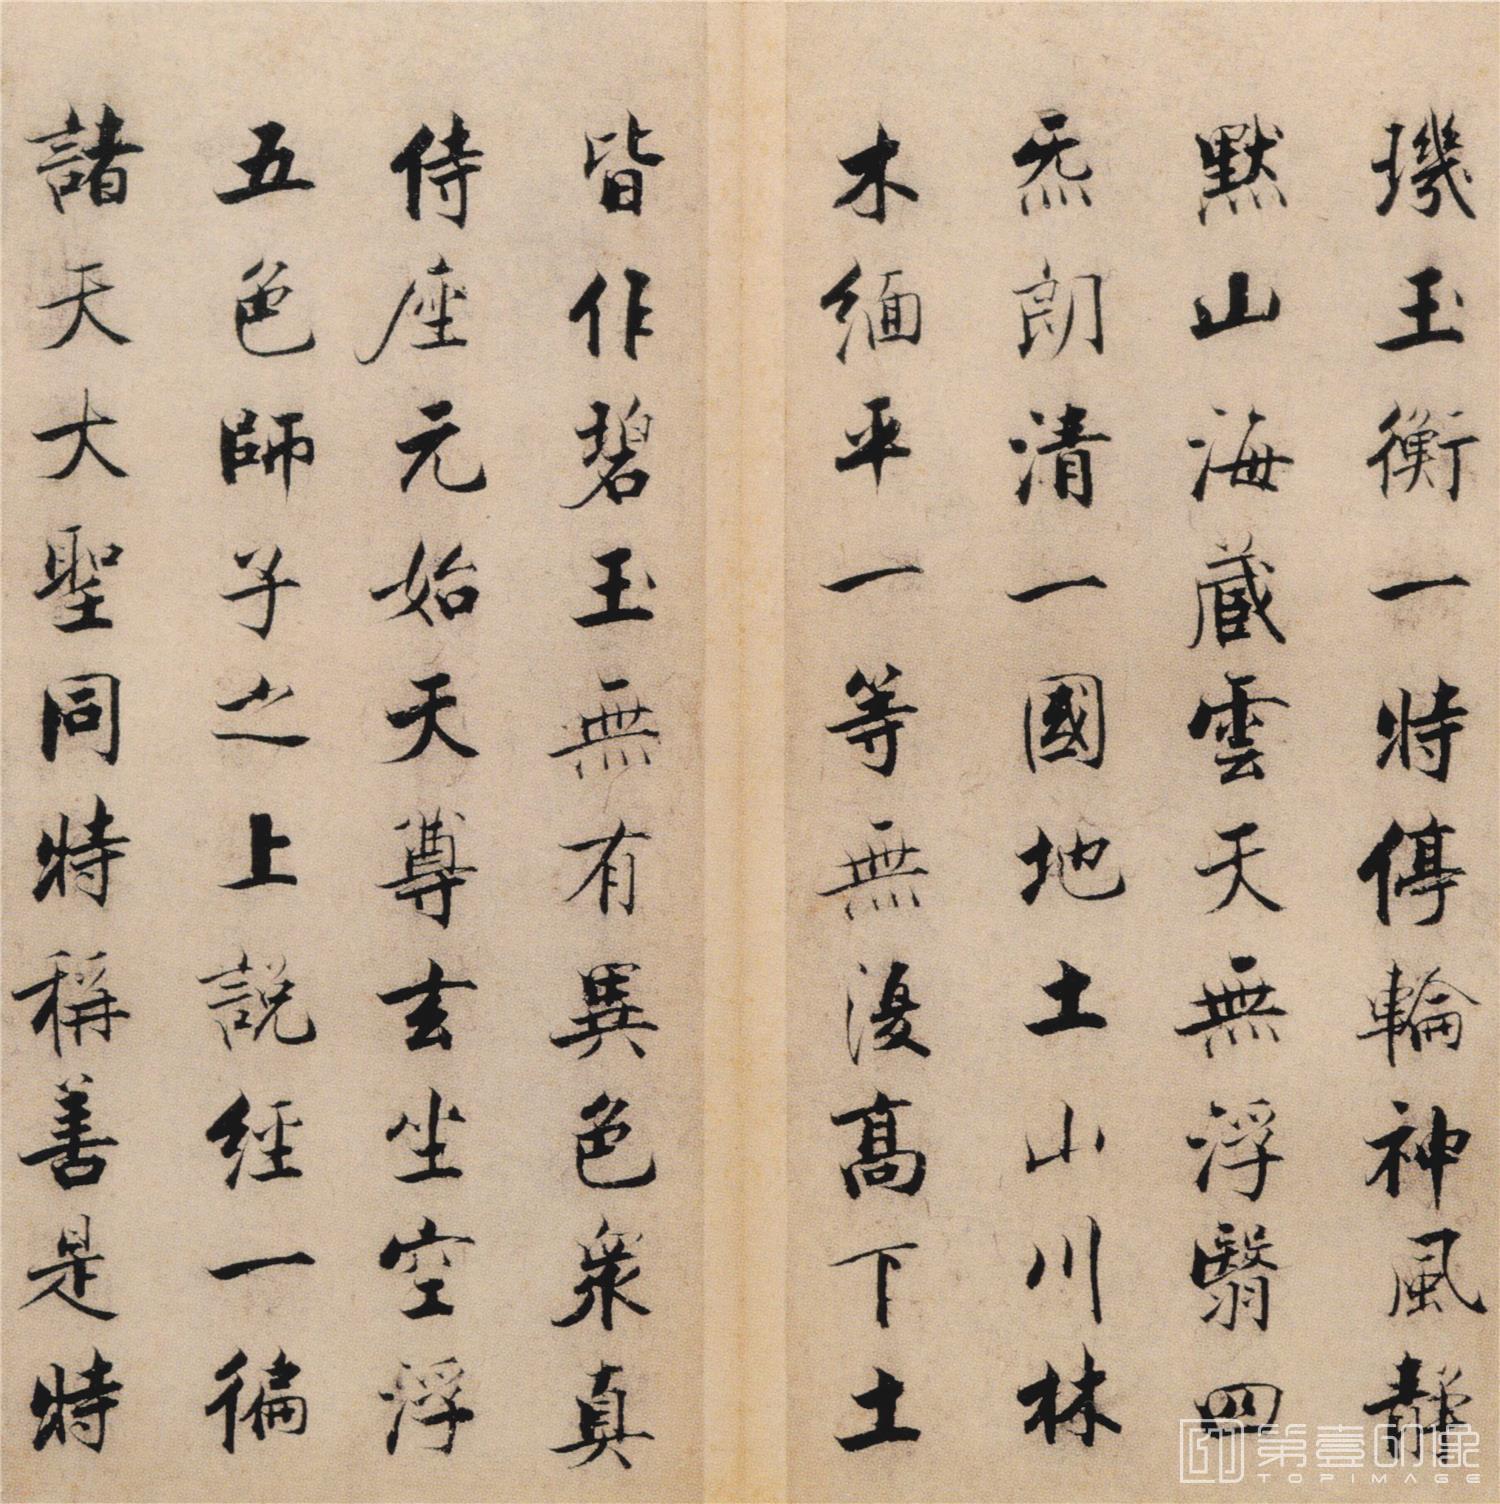 璣玉衡一時停輪神風靜
默山海藏雲天無浮翳四
炁朗清一國地土山川林
木緬平一等無復高下土
皆作碧玉無有異色衆真
侍座元始天尊玄坐空浮
五色師子之上說經一徧
諸天大聖同時稱善是時
第壹印像
TOPIMAGE